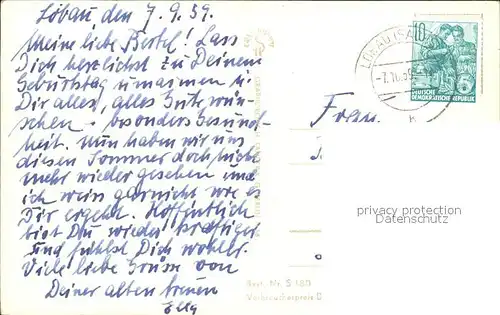 Löbau den 7.9.59.
Meine liebe Bertel! Lass
Dich herzlichst zu Deinem
Geburtstag umarmen u.
Dir alles, alles Gute wün-
schen - besonders Gesund-
heit. Nun haben wir uns
diesen Sommer doch nicht
mehr wieder gesehen und
ich weiss garnicht wie es
Dir ergeht. Hoffentlich
bist Du wieder kräftiger
und fühlst Dich wohler.
Viele liebe Grüsse von
Deiner alten treuen
Elly
10
DEUTSCHE
DEMOKRATISCHE REPUBLIK
LÖBAU (SA
Frau
privacy protection
Datenschutz
Best. Nr. S
Verbraucherpreis